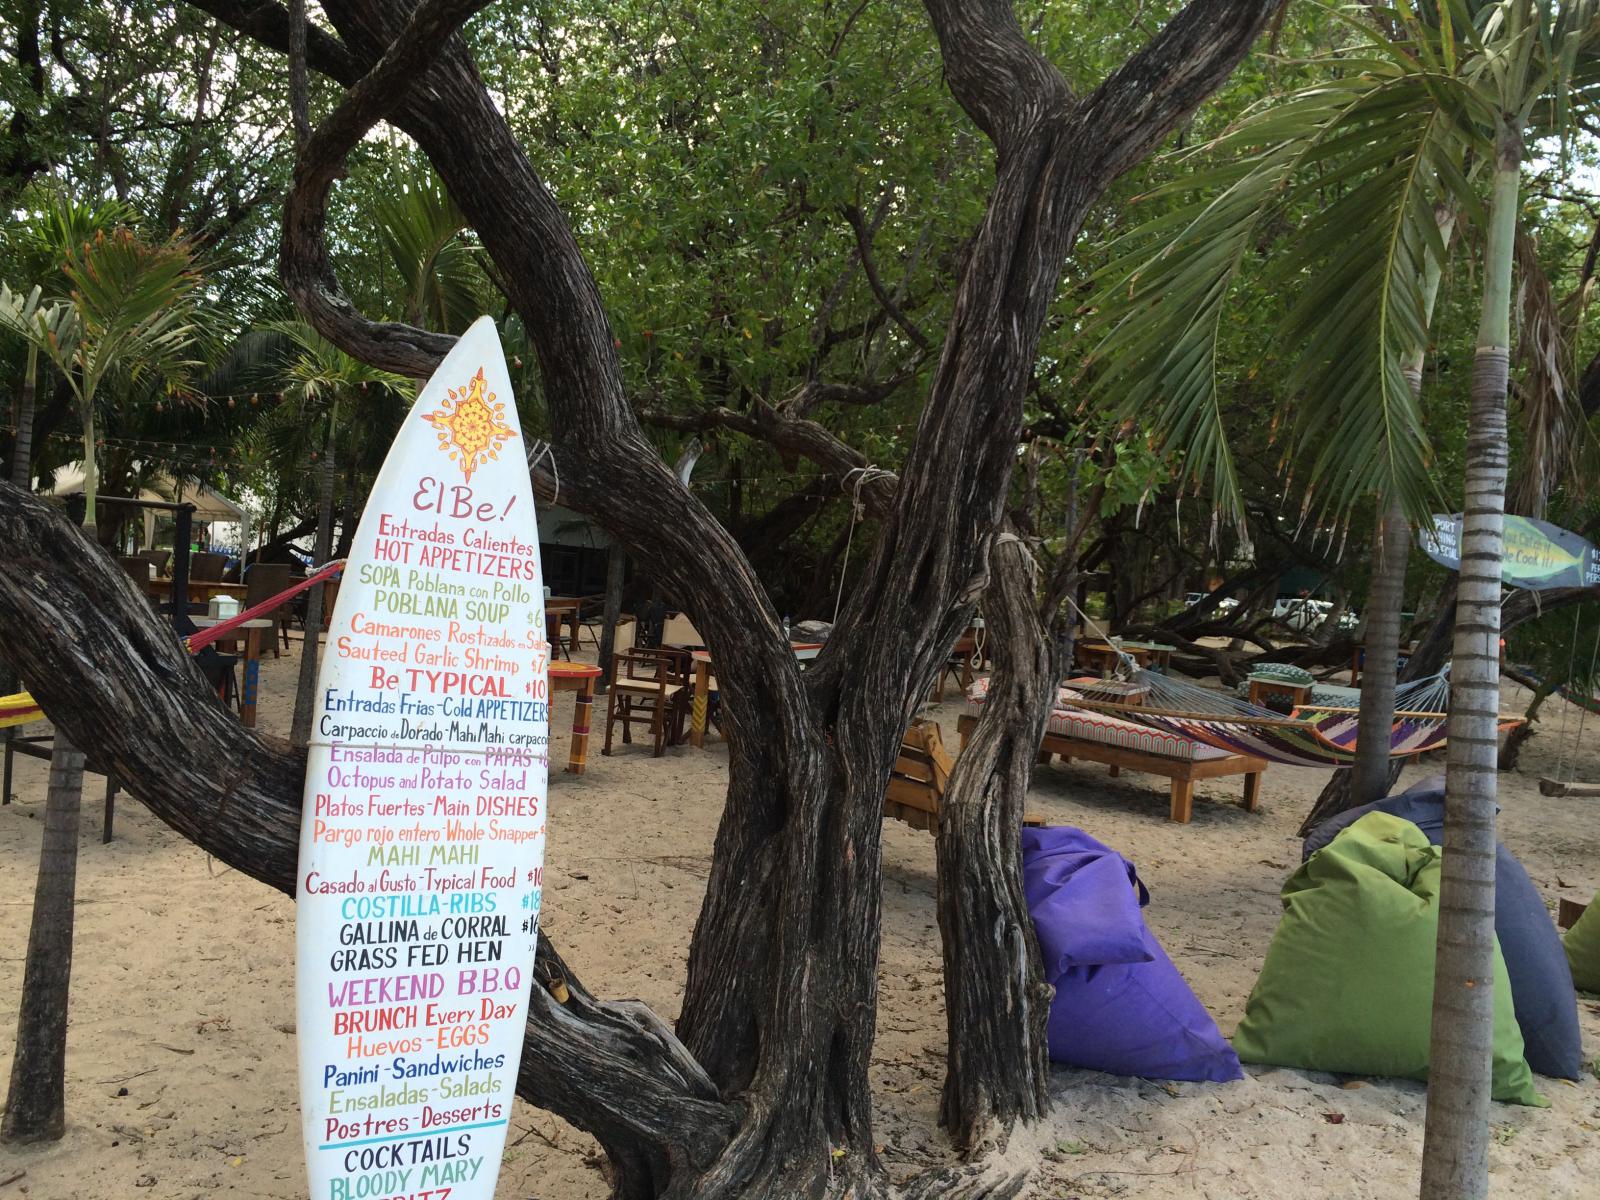 El Be!
Entradas Calientes
HOT APPETIZERS
SOPA Poblana con Pollo
POBLANA SOUP $6
Camarones Rostizados en
Sauteed Garlic Shrimp $7
Be TYPICAL $10
Entradas Frias-Cold APPETIZERS
Carpaccio de Dorado-Mahi Mahi carpaccio
Ensalada de Pulpo con PAPAS
Octopus and Potato Salad
Platos Fuertes-Main DISHES
Pargo rojo entero-Whole Snapper $
MAHI MAHI
Casado al Gusto-Typical Food $10
COSTILLA-RIBS $18
GALLINA de CORRAL $16
GRASS FED HEN "
WEEKEND B.B.Q
BRUNCH Every Day
Huevos-EGGS
Panini-Sandwiches
Ensaladas-Salads
Postres-Desserts
COCKTAILS
BLOODY MARY
PORT
HING
ESPECIAL
Cook It!
PER